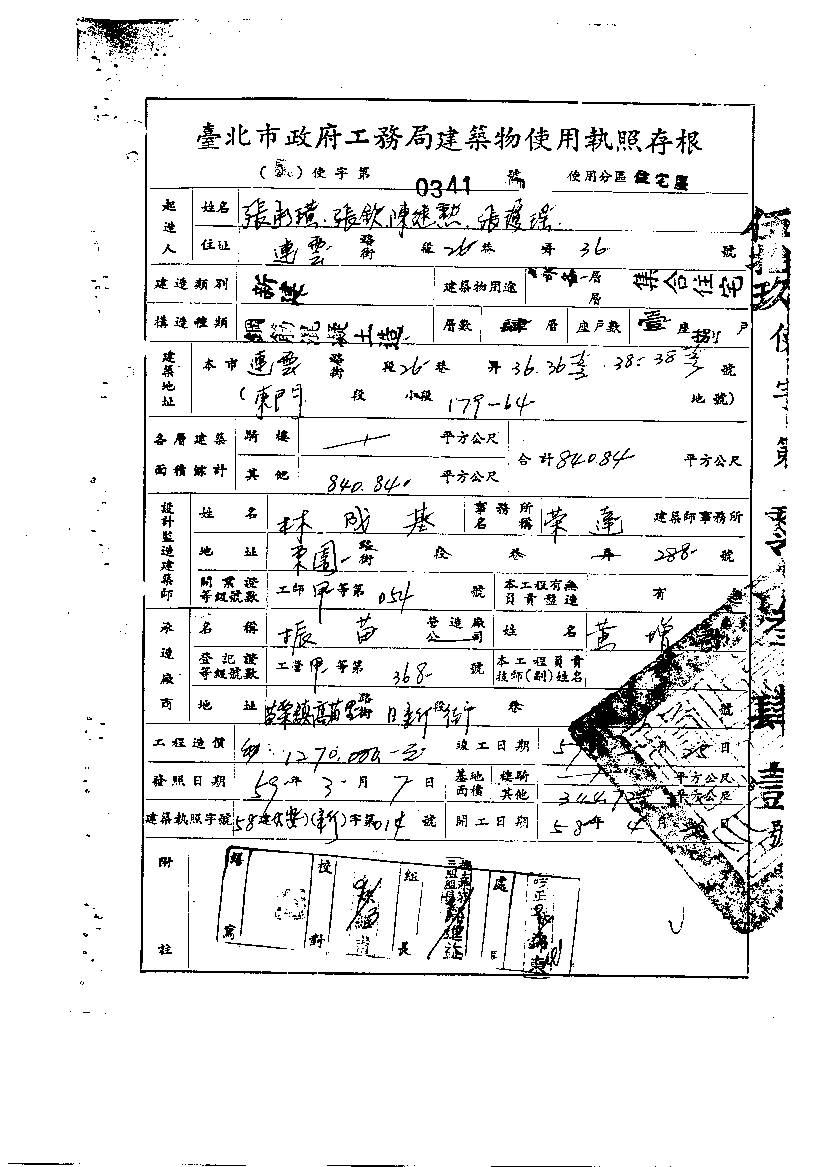 臺北市政府工務局建築物使用執照存根
( ) 使字第 0341 號 使用分區 住宅區
起造人 姓名 張 張欽 陳 張
住址 連雲 路街 段 26 巷 弄 36 號
建造類別 新建 建築物用途 層 層 集合住宅
構造種類 鋼筋混凝土造 層數 肆 層 座戶數 壹 座 捌 戶
建築地址 本市 連雲 路街 段 26 巷 弄 36. 36 38. 38 號
(東門 段 小段 179-64 地號)
各層建築面積總計 騎樓 平方公尺 合計 840.84 平方公尺
其他 840.840 平方公尺
設計監造建築師 姓名 林成基 事務所名稱 榮達 建築師事務所
地址 東園 路街 段 巷 弄 288 號
開業證等級號數 工師 甲 等第 054 號 本工程有無員責監造 有
承造廠商 名稱 振苗 營造廠公司 姓名 黃增
登記證等級號數 工營 甲 等第 368 號 本工程員責技師(副)姓名
地址 苗栗鎮高苗里 路街 巷 號
工程造價 1270,000 元 竣工日期 5 日
發照日期 59 年 3 月 7 日 基地面積 總騎 平方公尺
其他 344.7 平方公尺
建築執照字號 58 建(大安)(新)字第 014 號 開工日期 58 年 4 月 日
附註
繕寫 校對 組長 處
伍拾玖使字第零叁肆壹號